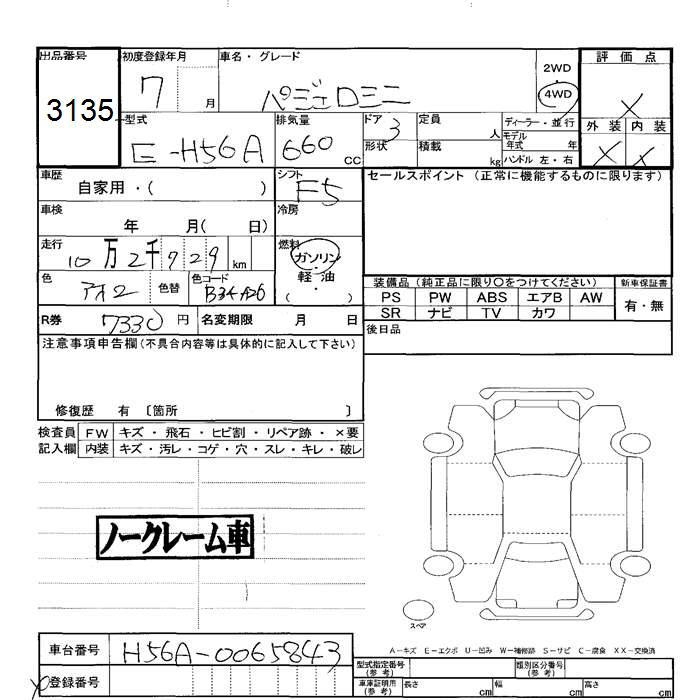 出品番号 初度登録年月 車名・グレード 評価点
3135 7 月 パジェロミニ 2WD 4WD X
型式 排気量 ドア 定員 ディーラー・並行 外装 内装
E-H56A 660 CC 3 人 モデル年式 年 X X
形状 積載 kg ハンドル 左・右
車歴 シフト セールスポイント (正常に機能するものに限ります)
自家用・( ) F5
車検 冷房
年 月( 日)
走行 燃料
10万2千929 km ガソリン・軽油・( )
色 色替 色コード 装備品 (純正品に限り○をつけてください) 新車保証書
アオ2 B34A26 PS PW ABS エアB AW 有・無
SR ナビ TV カワ
R券 7330円 名変期限 月 日 後日品
注意事項申告欄(不具合内容等は具体的に記入して下さい)
修復歴 有 〔箇所 〕
検査員 FW キズ・飛石・ヒビ割・リペア跡・×要
記入欄 内装 キズ・汚レ・コゲ・穴・スレ・キレ・破レ
ノークレーム車
スペア
A-キズ E-エクボ U-凹み W-補修跡 S-サビ C-腐食 XX-交換済
車台番号 H56A-0065843 型式指定番号(参考) 類別区分番号(参考)
登録番号 車庫証明用(参考) 長さ cm 幅 cm 高さ cm